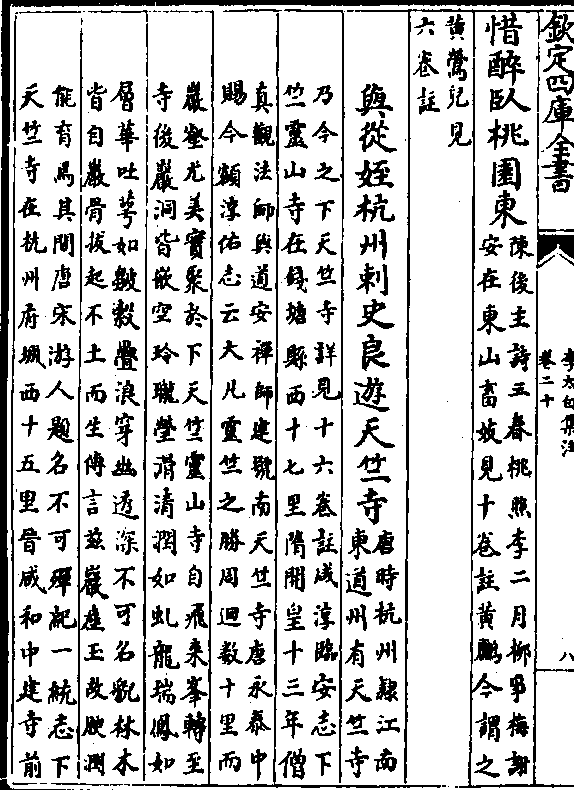 欽定四庫全書
李太白集注
卷二十
八
惜醉臥桃園東
陳後主詩三春桃照李二月柳爭梅謝
安在東山畜妓見十卷註黃鸝今謂之
黃鶯兒見
六卷註
與從姪杭州刺史良遊天竺寺
唐時杭州隸江南
東道州有天竺寺
乃今之下天竺寺詳見十六卷註咸淳臨安志下
竺靈山寺在錢塘縣西十七里隋開皇十三年僧
真觀法師與道安禪師建號南天竺寺唐永泰中
賜今額淳佑志云大凡靈竺之勝周迴數十里而
巖壑尤美實聚於下天竺靈山寺自飛來峯轉至
寺後巖洞皆嵌空玲瓏瑩滑清潤如虬龍瑞鳳如
層華吐萼如皺縠疊浪穿幽透深不可名貌林木
皆自巖骨拔起不土而生傳言茲巖產玉故腴潤
能育焉其間唐宋游人題名不可殫記一統志下
天竺寺在杭州府城西十五里晉咸和中建寺前